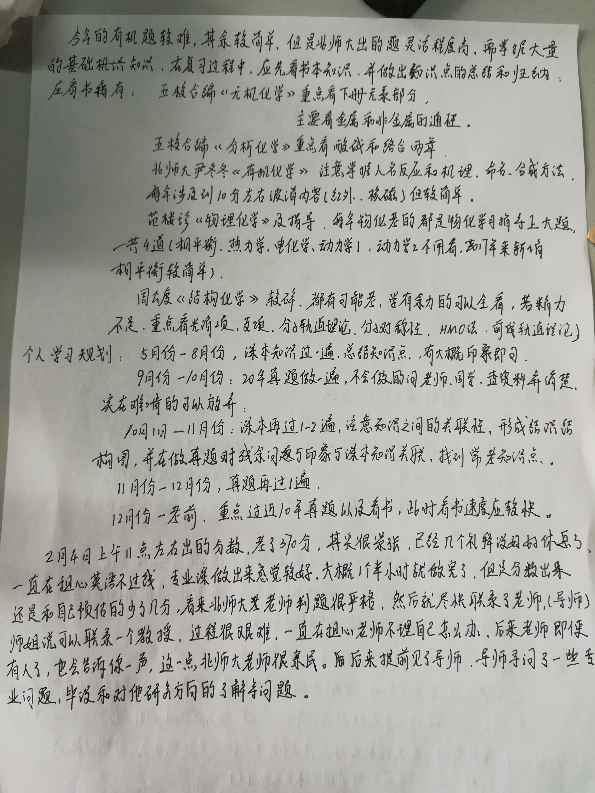 今年的有机题较难，其余较简单，但是北师大出的题灵活程度高，需掌握大量
的基础概识知识，在复习过程中，应先看书本知识，并做出知识点的总结和归纳。
应看书籍有：五校合编《无机化学》重点看下册元素部分，
主要看金属和非金属的通性。
五校合编《分析化学》重点看酸碱和络合两章
北师大尹冬冬《有机化学》注意掌握人名反应和机理、命名、合成方法，
每年涉及到10分左右波谱内容(红外、核磁)但较简单。
范楼珍《物理化学》及指导，每年物化考的都是物化学习指导上大题，
一共4道(相平衡、热力学、电化学、动力学1，动力学2不用看，2017年来新偏
相平衡较简单)。
周公度《结构化学》较碎，都有可能考，学有余力的可以全看，若精力
不足，重点看光谱项、支项、分子轨道理论、分子对称性、HMO法、前线轨道理论)
个人学习规划：5月份-8月份，课本知识过一遍，总结知识点，有大概印象即可。
9月份-10月份：20年真题做一遍，不会做励问老师、同学，查资料弄清楚，
实在难啃的可以放弃。
10月份-11月份：课本再过1-2遍，注意知识之间的关联性，形成知识结
构图，并在做真题时残余问题与印象与课本知识关联，找到常考知识点。
11月份-12月份，真题再过1遍
12月份-考前，重点过近10年真题以及看书，此时看书速度应较快。
2月4日上午11点左右出的分数，考了370分，其实很紧张，已经几个礼拜没好好休息了，
一直在担心英语不过线，专业课做出来感觉较好，大概1个半小时就做完了，但是分数出来
还是和自己预估的少了几分，看来北师大老老师判题很严格，然后就尽快联系了老师，(导师)
师姐说可以联系一个教授，过程很艰难，一直在担心老师不理自己怎么办，后来老师即使
有人了，也会告诉你一声，这一点北师大老师很亲民。后后来提前见了导师，导师寻问了一些专
业问题，毕设和对他研究方向的了解等问题。